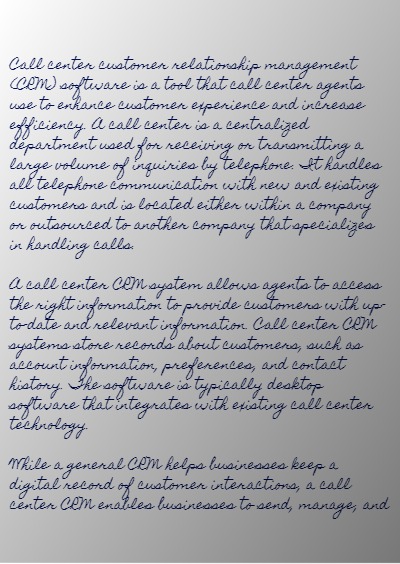 Call center customer relationship management
(CRM) software is a tool that call center agents
use to enhance customer experience and increase
efficiency. A call center is a centralized
department used for receiving or transmitting a
large volume of inquiries by telephone. It handles
all telephone communication with new and existing
customers and is located either within a company
or outsourced to another company that specializes
in handling calls.

A call center CRM system allows agents to access
the right information to provide customers with up-
to-date and relevant information. Call center CRM
systems store records about customers, such as
account information, preferences, and contact
history. The software is typically desktop
software that integrates with existing call center
technology.

While a general CRM helps businesses keep a
digital record of customer interactions, a call
center CRM enables businesses to send, manage, and